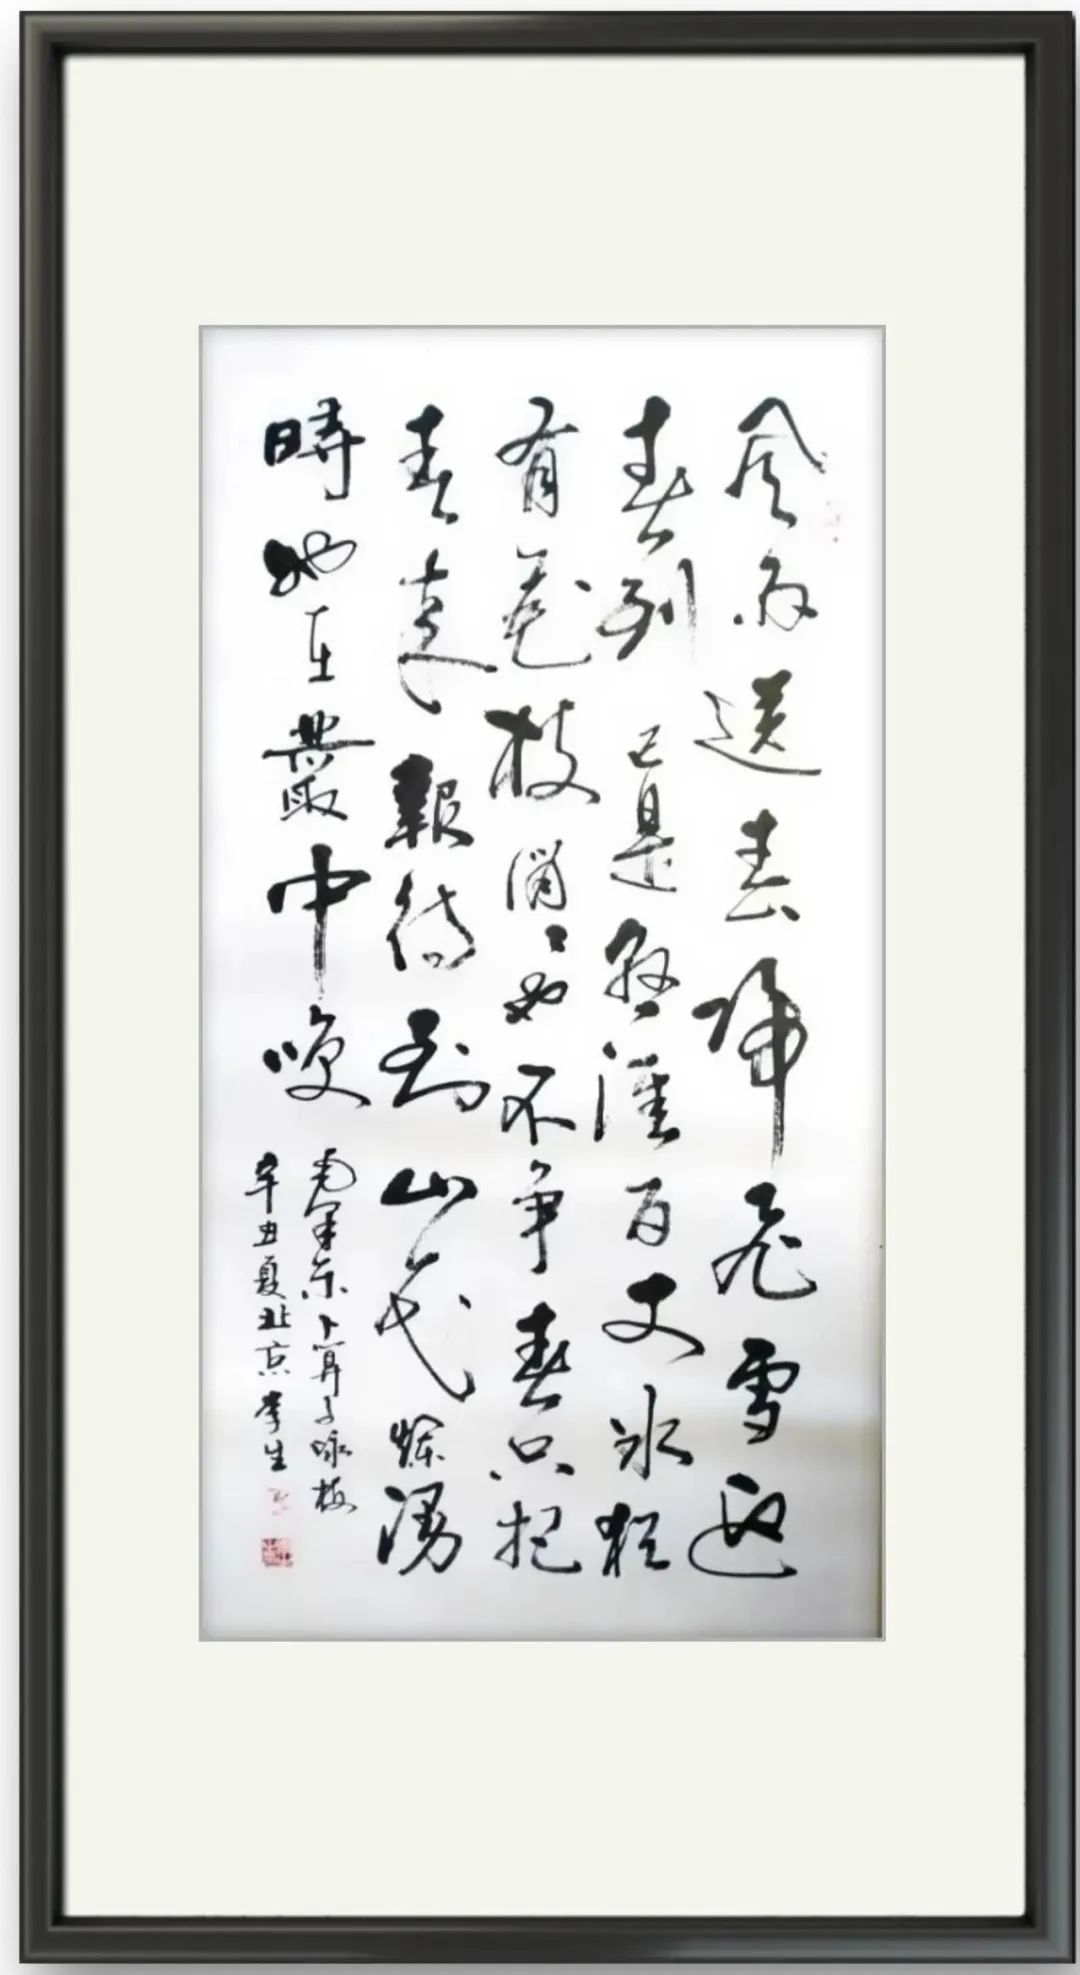 风雨送春歸飛雪迎
春到已是懸崖百丈冰猶
有花枝俏〻也不争春只把
春来報待到山花爛漫
時她在叢中笑
毛泽东卜算子咏梅
辛丑夏北京李生